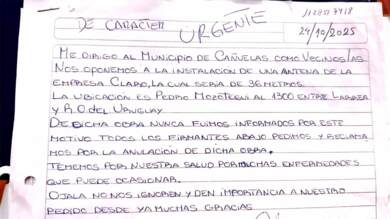 DE CARACTER URGENTE
24/10/2025
ME DIRIGO AL MUNICIPIO DE CAÑUELAS COMO VECINOS/AS
NOS OPONEMOS A LA INSTALACION DE UNA ANTENA DE LA
EMPRESA CLARO, LA CUAL SERIA DE 36 METROS.
LA UBICACION ES PEDRO MOZOTEGUI AL 1300 ENTRE LARREA
Y R.O DEL URUGUAY
DE DICHA OBRA NUNCA FUIMOS INFORMADOS POR ESTE
MOTIVO TODOS LOS FIRMANTES ABAJO PEDIMOS Y RECLAMA
MOS POR LA ANULACION DE DICHA OBRA.
TEMEMOS POR NUESTRA SALUD POR MUCHAS ENFERMEDADES
QUE PUEDE OCASIONAR.
OJALA NO NOS IGNOREN Y DEN IMPORTANCIA A NUESTRO
PEDIDO DESDE YA MUCHAS GRACIAS